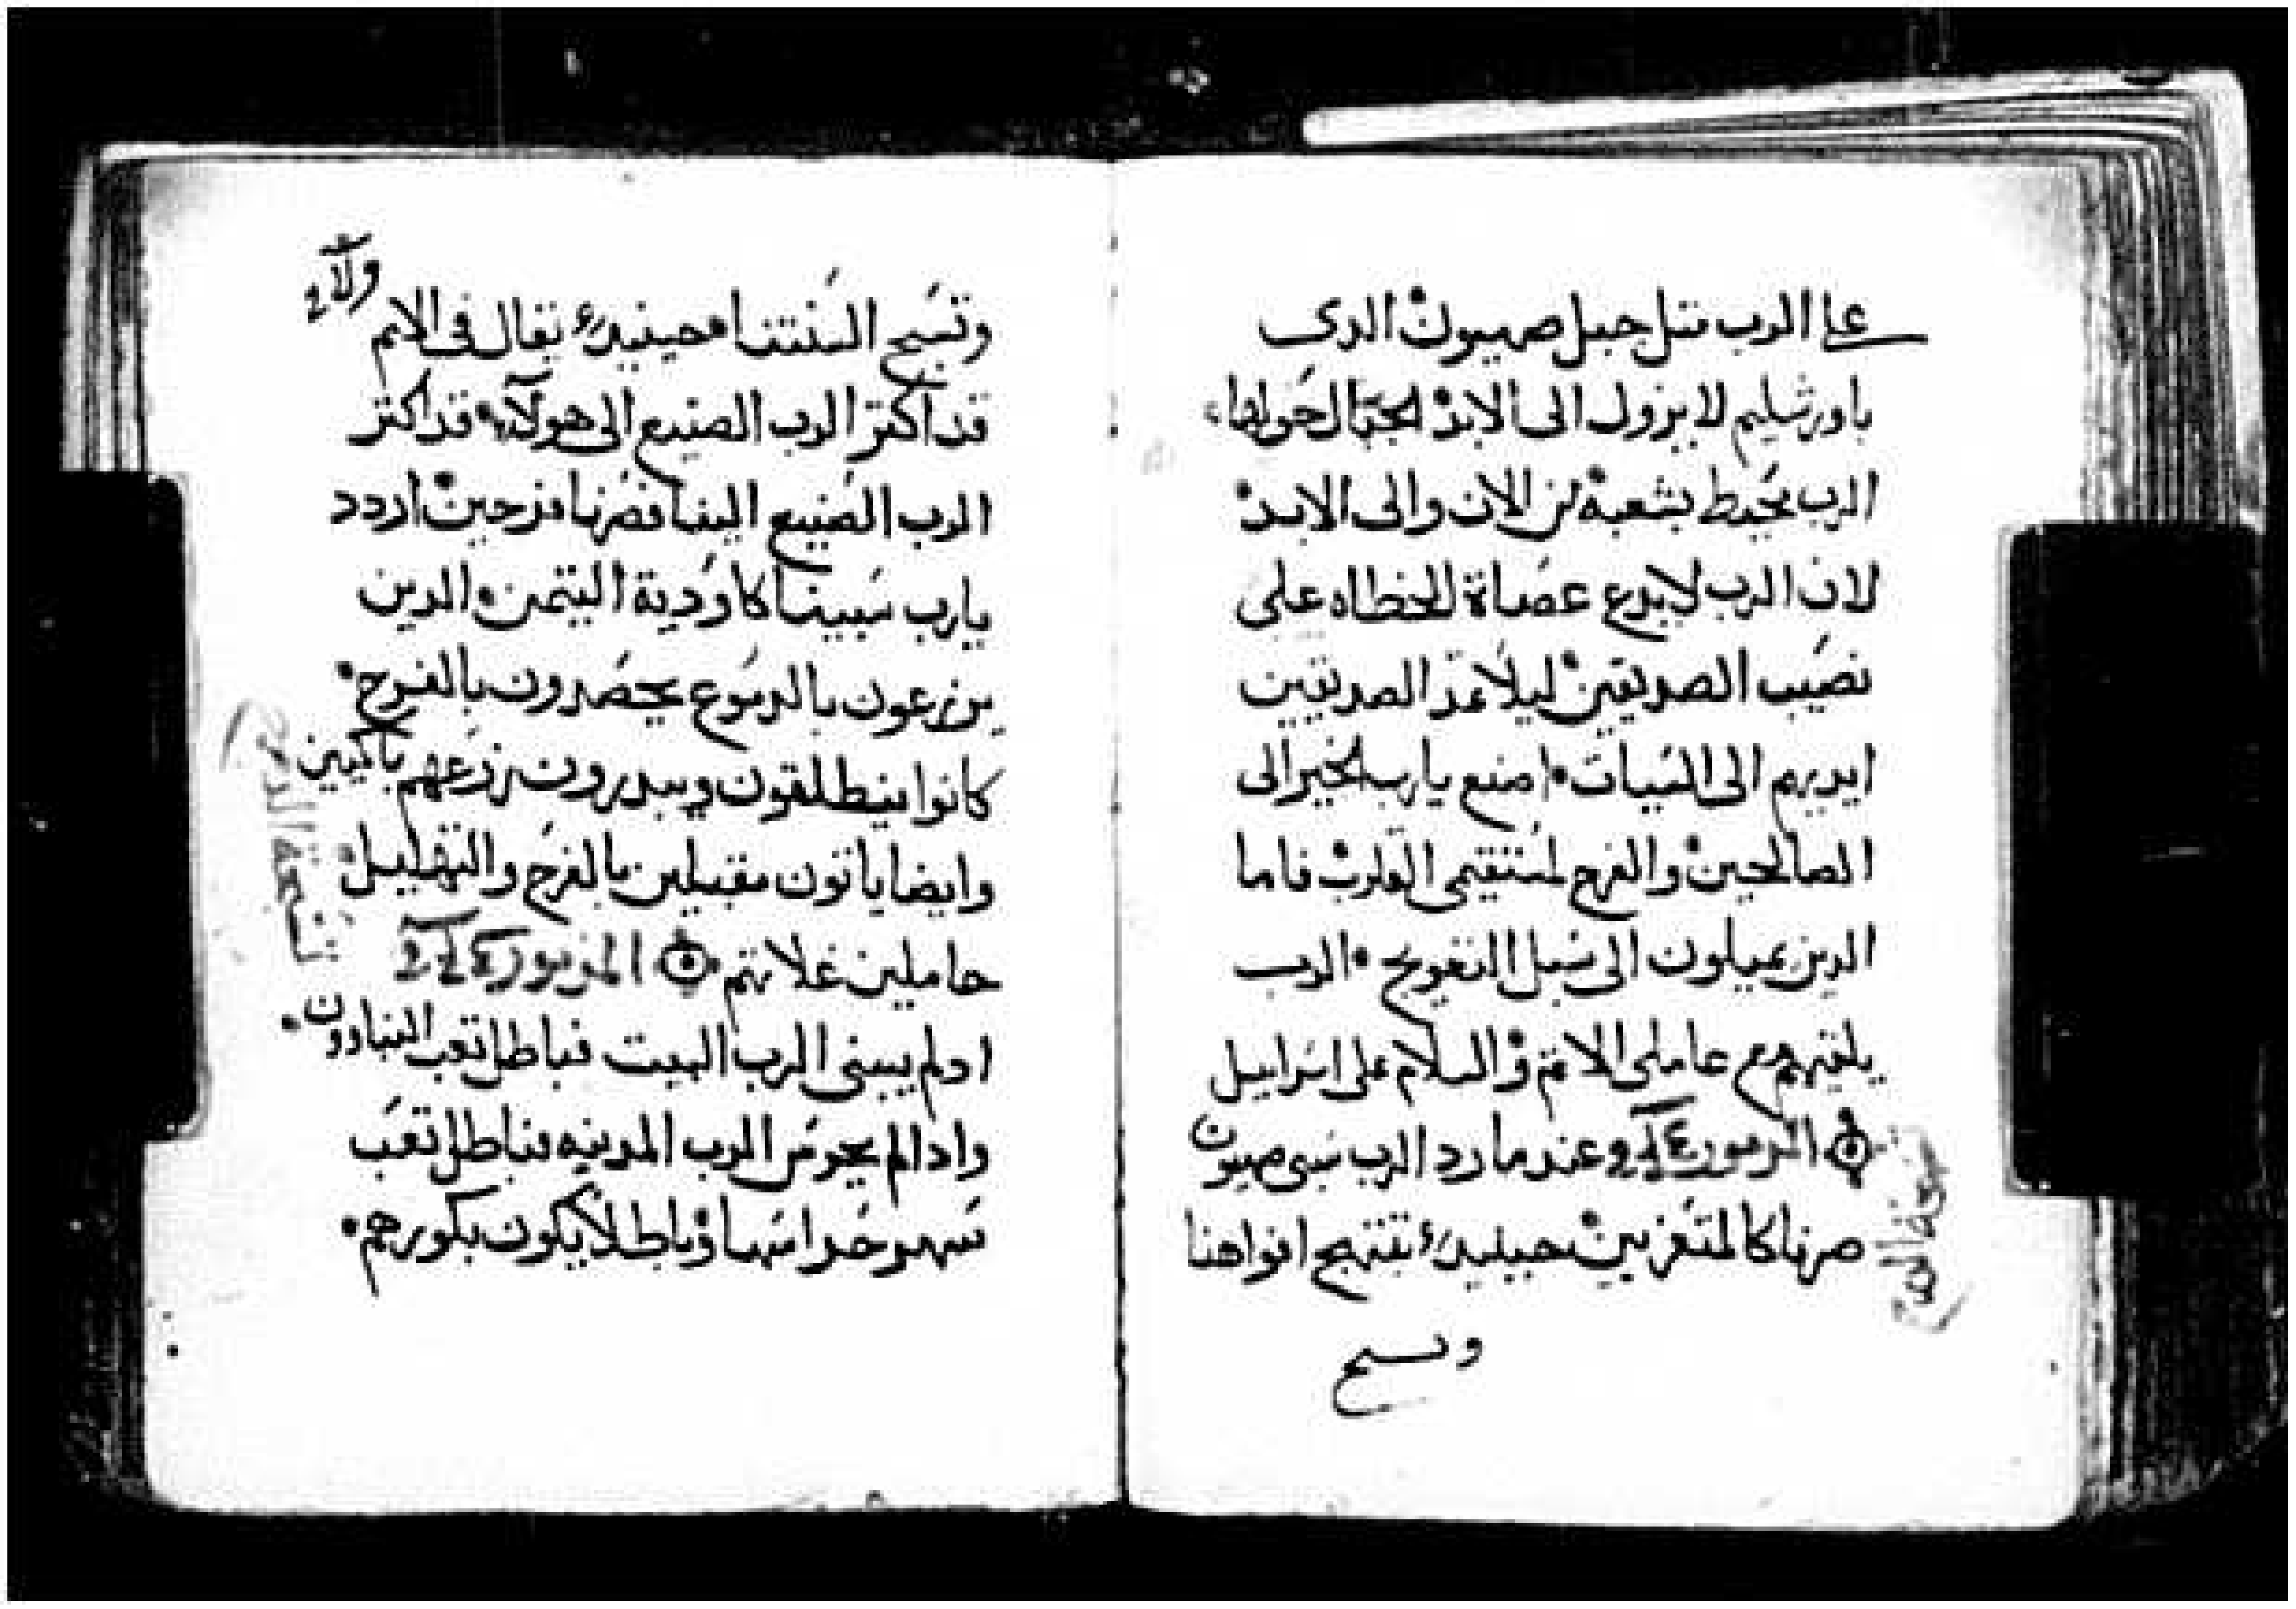 على الرب متل جبل صهيون الدى
باورشليم لا يزول الى الابد الجبال حولها
الرب يحيط بشعبه من الان والى الابد
لان الرب لا يدع عصاة الخطاه على
نصيب الصديقين ليلا تمد الصديقين
ايديهم الى السيات اصنع يارب الخير الى
الصالحين والفرح لمستقيمى القلوب فاما
الدين يميلون الى سبل التعويج الرب
يلقيهم مع عاملى الاتم والسلام على اسراييل
المزمور عند ما رد الرب سبى صهيون
صرنا كالمتعزيين حينيد تبتهج افواهنا
وتسبح
وتسبح السنتنا حينيد يقال فى الامم
قد اكتر الرب الصنيع الى هولاء قد اكتر
الرب الصنيع الينا فصرنا فرحين اردد
يارب سبينا كاودية التيمن الدين
يزرعون بالدموع يحصدون بالفرح
كانوا ينطلقون ويبدرون زرعهم باكيين
وايضا ياتون مقبلين بالفرح والتهليل
حاملين غلاتهم المزمور
ادلم يبنى الرب البيت فباطل تعب البناوون
وادالم يحرس الرب المدينه فباطل تعب
سهر حراسها وباطلا يكون بكورهم